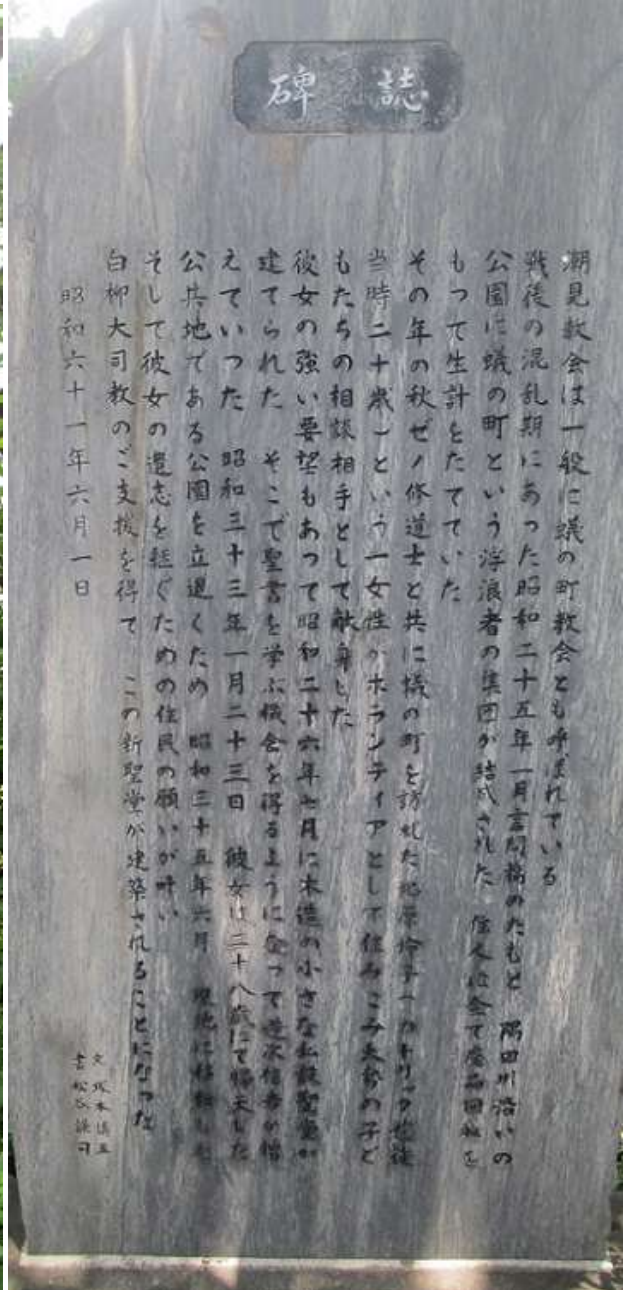 碑誌
潮見教会は一般に蟻の町教会とも呼ばれている
戦後の混乱期にあった昭和二十五年一月言問橋のたもと 隅田川沿いの
公園に蟻の町という浮浪者の集団が結成された 住人は全て廃品回収を
もつて生計をたてていた
その年の秋ゼノ修道士と共に蟻の町を訪れた北原怜子(カトリック信徒
当時二十歳)という一女性がボランティアとして住みこみ大勢の子ど
もたちの相談相手として献身した
彼女の強い要望もあって昭和二十六年七月に木造の小さな私設聖堂が
建てられた そこで聖書を学ぶ機会を得るようになって逐次信者が増
えていつた 昭和三十三年一月二十三日 彼女は二十八歳にて帰天した
公共地である公園を立退くため 昭和三十五年六月 現地に移転した
そして彼女の遺志を継ぐための住民の願いが叶い
白柳大司教のご支援を得て この新聖堂が建築されることになった
昭和六十一年六月一日
文
書